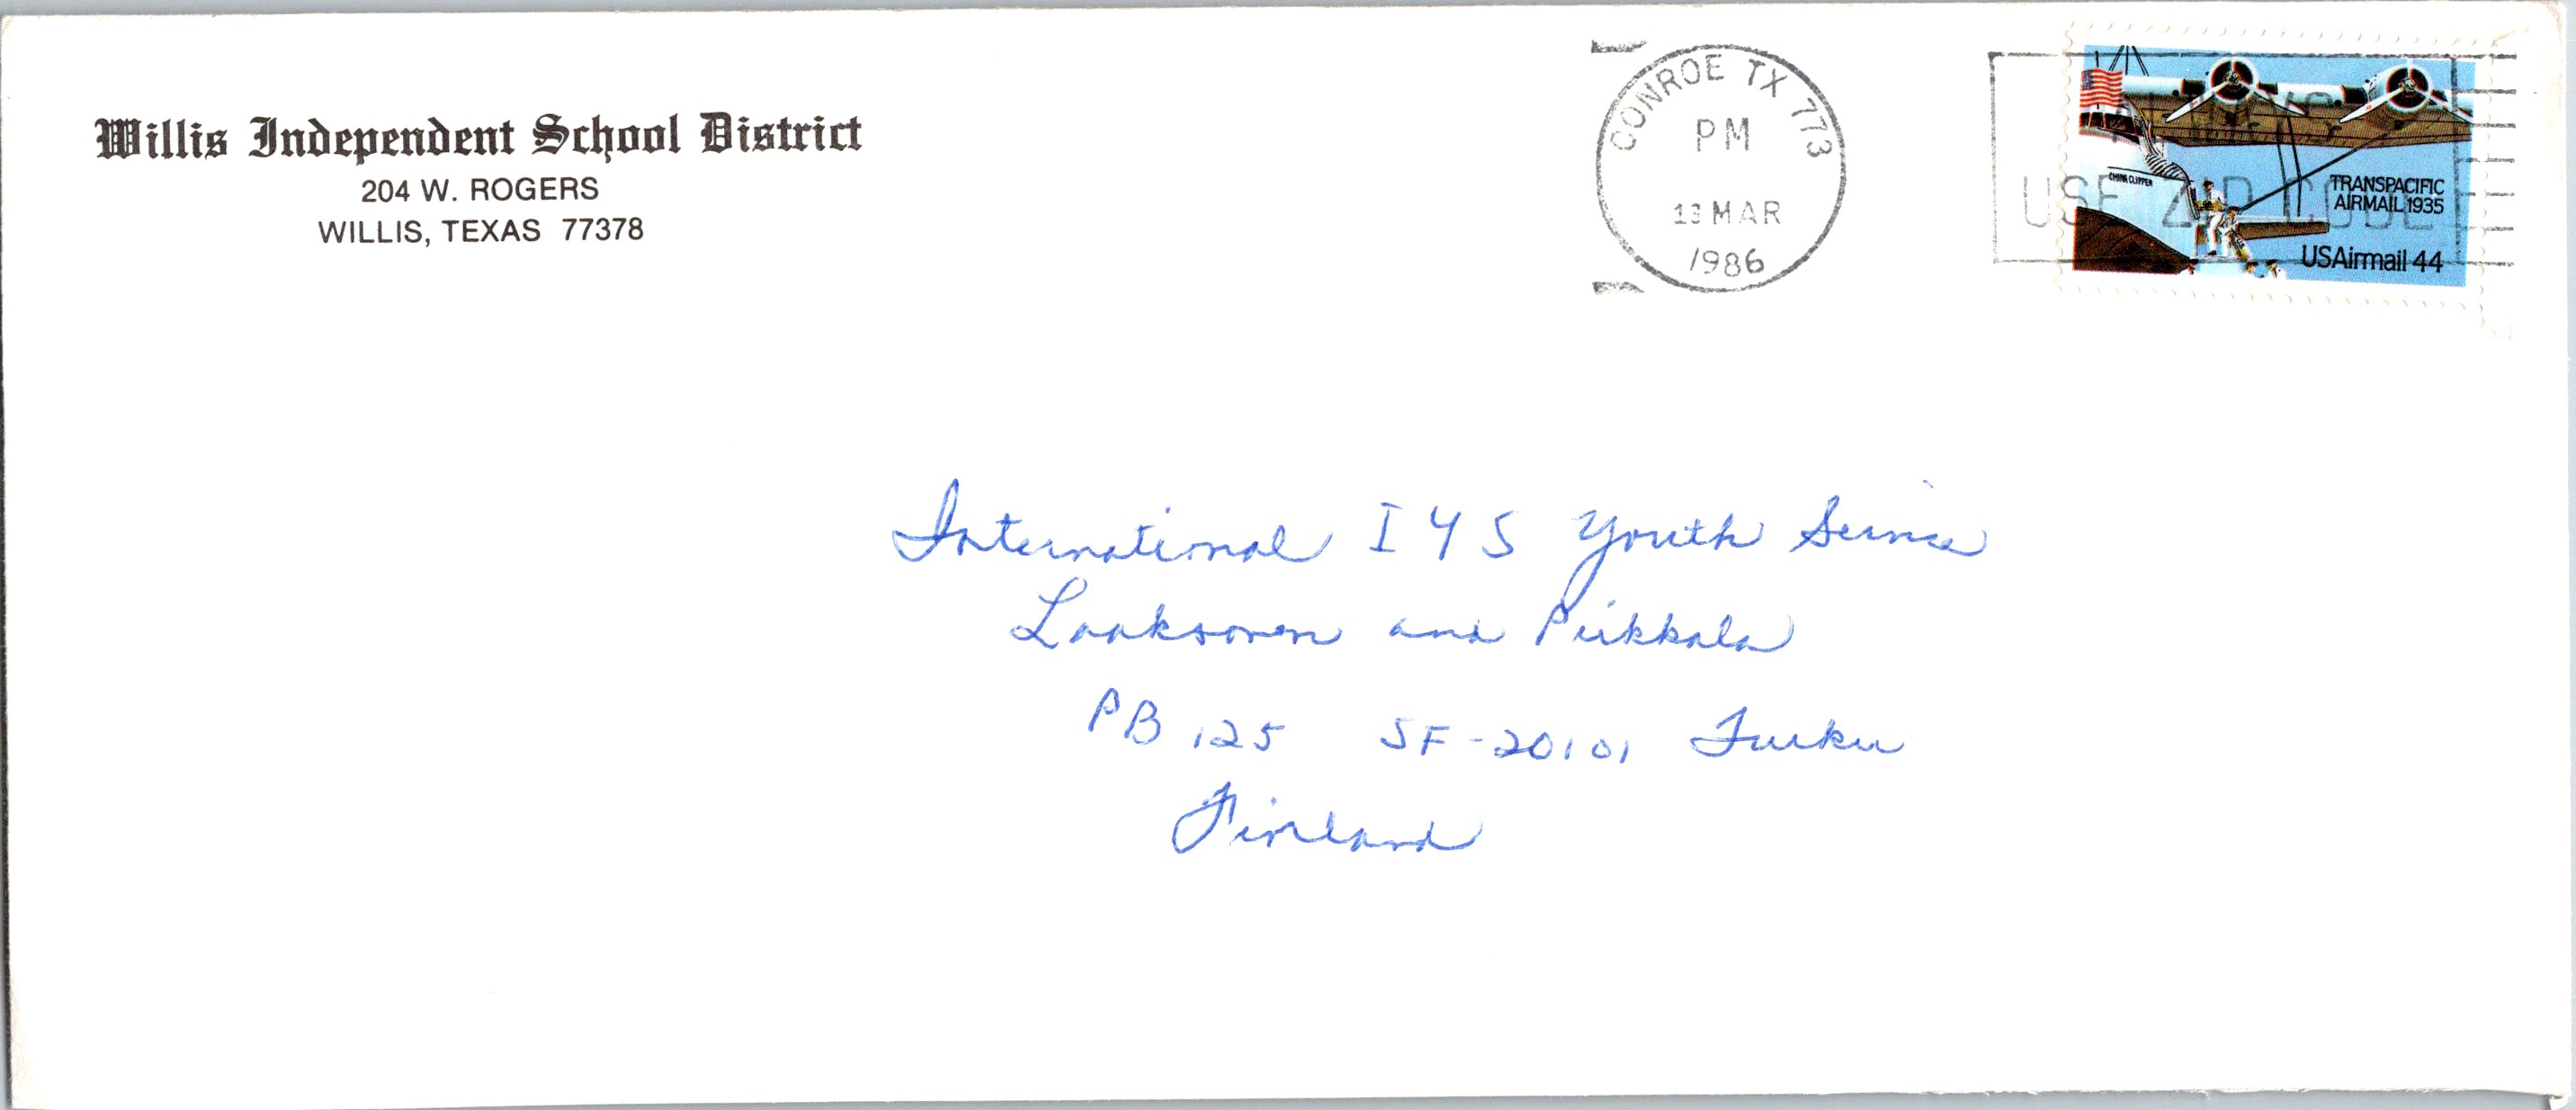 Willis Independent School District
204 W. ROGERS
WILLIS, TEXAS 77378
CONROE TX 773
PM
13 MAR
1986
USE ZIP CODE
CHINA CLIPPER
TRANSPACIFIC
AIRMAIL 1935
USAirmail 44
International I Y S Youth Service
Laaksonen and Piikkala
PB 125 SF-20101 Turku
Finland